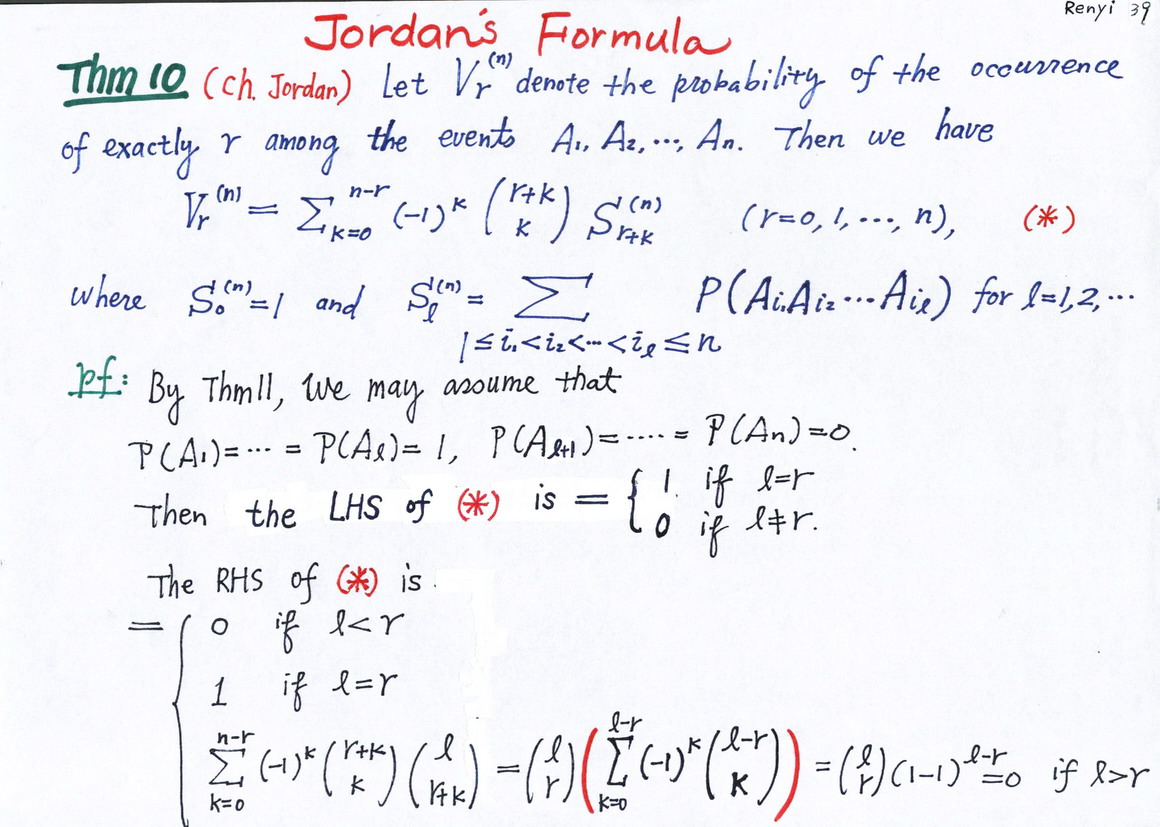 Renyi 39
Jordan's Formula
Thm 10 (Ch. Jordan) Let Vr^(n) denote the probability of the occurrence
of exactly r among the events A1, A2, ⋯, An. Then we have
Vr^(n) = ∑_{k=0}^{n-r} (-1)^k (r+k choose k) S_{r+k}^(n) (r=0, 1, ⋯, n), (*)
where S0^(n)=1 and Sℓ^(n) = ∑_{1≤i1<i2<⋯<iℓ≤n} P(Ai1Ai2⋯Aiℓ) for ℓ=1,2,⋯
pf: By Thm11, We may assume that
P(A1)=⋯ = P(Aℓ)= 1, P(Aℓ+1)=⋯⋯= P(An)=0.
Then the LHS of (*) is = { 1 if ℓ=r
0 if ℓ≠r.
The RHS of (*) is
= { 0 if ℓ<r
1 if ℓ=r
∑_{k=0}^{n-r} (-1)^k (r+k choose k) (ℓ choose r+k) = (ℓ choose r) ( ∑_{k=0}^{ℓ-r} (-1)^k (ℓ-r choose k) ) = (ℓ choose r) (1-1)^{ℓ-r} =0 if ℓ>r